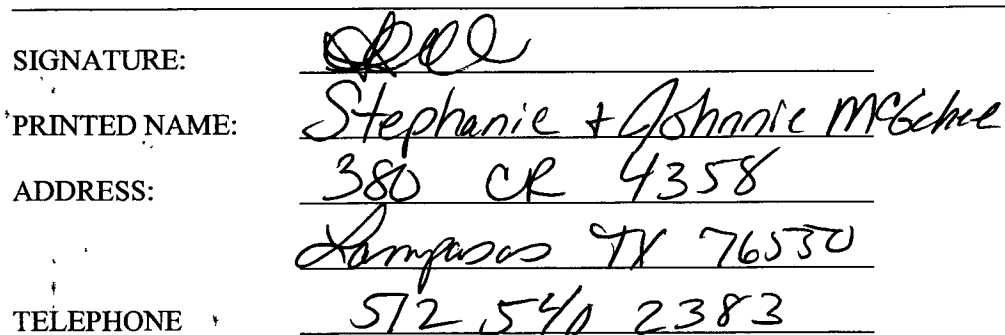 SIGNATURE:
PRINTED NAME: Stephanie + Johnnie McGehee
ADDRESS: 380 CR 4358
Lampasas TX 76550
TELEPHONE 512 540 2383